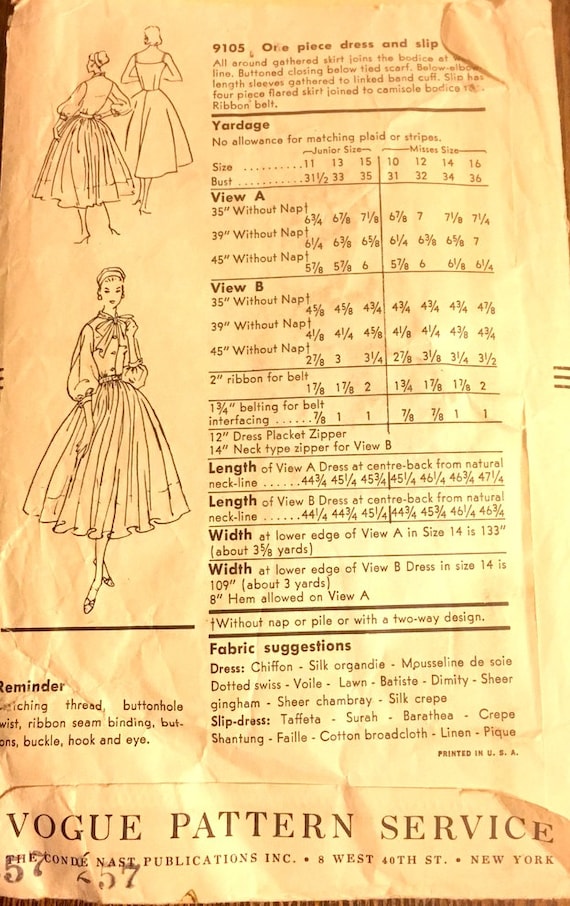 9105 One piece dress and slip
All around gathered skirt joins the bodice at
line. Buttoned closing below tied scarf. Below-elbow
length sleeves gathered to linked band cuff. Slip has
four piece flared skirt joined to camisole bodice
Ribbon belt.
Yardage
No allowance for matching plaid or stripes.
Junior Size Misses Size
Size .......... 11 13 15 10 12 14 16
Bust ........... 31½ 33 35 31 32 34 36
View A
35" Without Nap†
6¾ 6⅞ 7⅛ 6⅞ 7 7⅛ 7¼
39" Without Nap†
6¼ 6⅜ 6⅝ 6¼ 6⅜ 6⅝ 7
45" Without Nap†
5⅞ 5⅞ 6 5⅞ 6 6⅛ 6¼
View B
35" Without Nap†
4⅝ 4⅝ 4¾ 4¾ 4¾ 4¾ 4⅞
39" Without Nap†
4⅛ 4¼ 4⅝ 4⅛ 4¼ 4⅜ 4¾
45" Without Nap†
2⅞ 3 3¼ 2⅞ 3⅛ 3¼ 3½
2" ribbon for belt
1⅞ 1⅞ 2 1¾ 1⅞ 1⅞ 2
1¾" belting for belt
interfacing ...... ⅞ 1 1 ⅞ ⅞ 1 1
12" Dress Placket Zipper
14" Neck type zipper for View B
Length of View A Dress at centre-back from natural
neck-line ..... 44¾ 45¼ 45¾ 45¼ 46¼ 46¾ 47¼
Length of View B Dress at centre-back from natural
neck-line ...... 44¼ 44¾ 45¼ 44¾ 45¾ 46¼ 46¾
Width at lower edge of View A in Size 14 is 133"
(about 3⅝ yards)
Width at lower edge of View B Dress in size 14 is
109" (about 3 yards)
8" Hem allowed on View A
†Without nap or pile or with a two-way design.
Fabric suggestions
Dress: Chiffon - Silk organdie - Mousseline de soie
Dotted swiss - Voile - Lawn - Batiste - Dimity - Sheer
gingham - Sheer chambray - Silk crepe
Slip-dress: Taffeta - Surah - Barathea - Crepe
Shantung - Faille - Cotton broadcloth - Linen - Pique
PRINTED IN U. S. A.
Reminder
thread, buttonhole
wist, ribbon seam binding, but-
ons, buckle, hook and eye.
VOGUE PATTERN SERVICE
THE CONDÉ NAST PUBLICATIONS INC. • 8 WEST 40TH ST. • NEW YORK
57 257